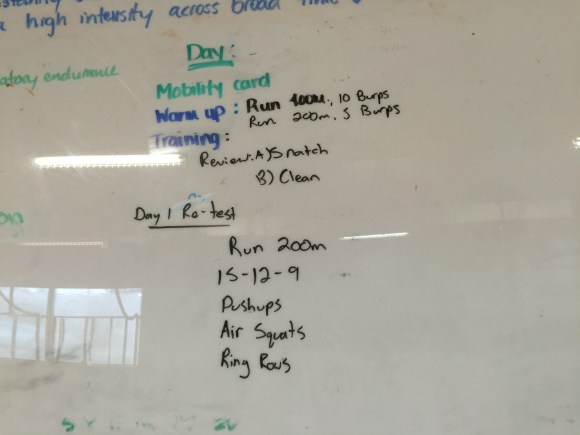 high intensity across broad time
endurance
Day:
Mobility card
Warm up: Run 400m, 10 Burps
Run 200m, 5 Burps
Training:
Review: A) Snatch
B) Clean
Day 1 Re-test
Run 200m
15-12-9
Pushups
Air Squats
Ring Rows